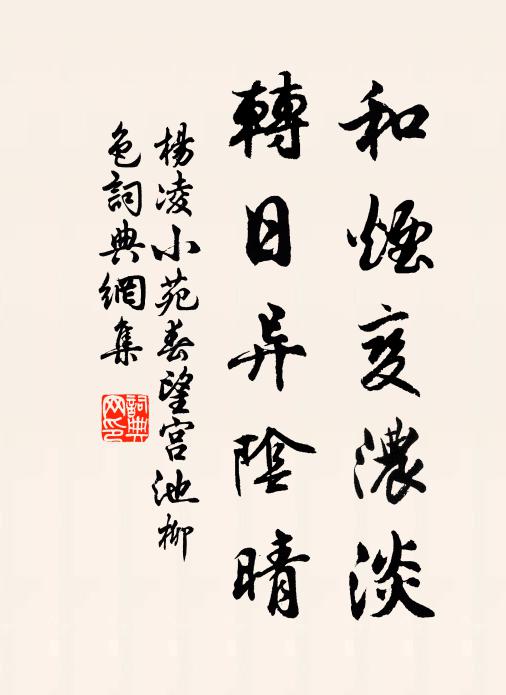 和煙变濃淡
轉日异陰晴
楊凌小苑春望宫池柳
色詞典網集
詞典
网印